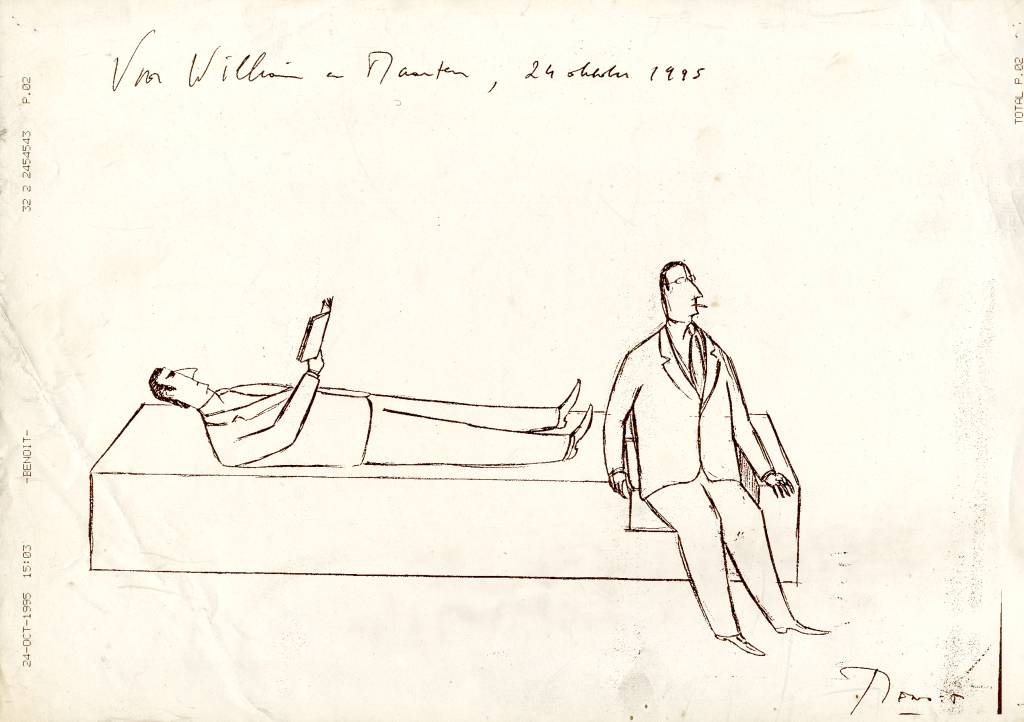 Voor William en Maarten, 24 oktober 1995
24-OCT-1995 15:03 -BENOIT- 32 2 2454543 P.02
TOTAL P.02
Benoit